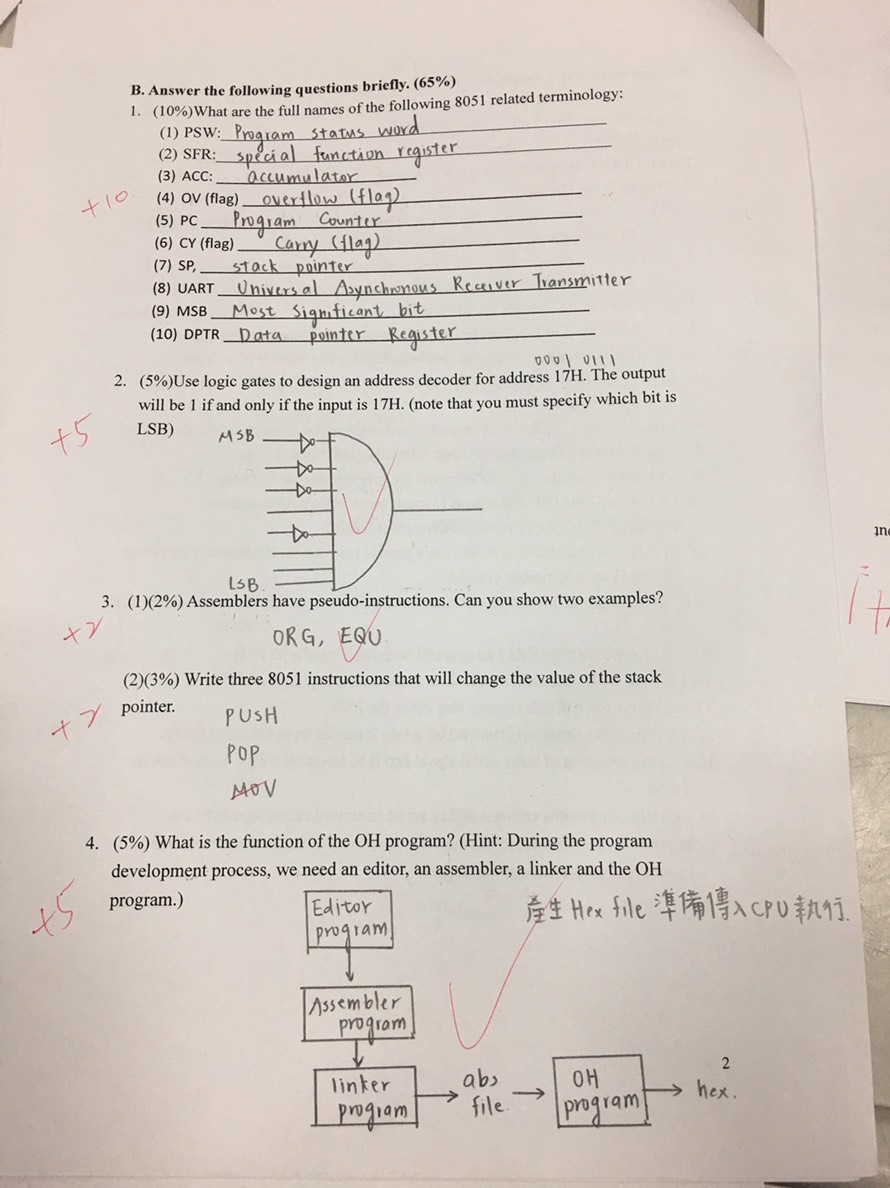 B. Answer the following questions briefly. (65%)
1. (10%)What are the full names of the following 8051 related terminology:
(1) PSW: Program status word
(2) SFR: special function register
(3) ACC: accumulator
+10
(4) OV (flag) overflow (flag)
(5) PC Program Counter
(6) CY (flag) Carry (flag)
(7) SP, stack pointer
(8) UART Universal Asynchronous Receiver Transmitter
(9) MSB Most Significant bit
(10) DPTR Data pointer Register
0001 0111
2. (5%)Use logic gates to design an address decoder for address 17H. The output
will be 1 if and only if the input is 17H. (note that you must specify which bit is
LSB)
+5
MSB
LSB
3. (1)(2%) Assemblers have pseudo-instructions. Can you show two examples?
+2
ORG, EQU
(2)(3%) Write three 8051 instructions that will change the value of the stack
pointer.
+2
PUSH
POP
MOV
4. (5%) What is the function of the OH program? (Hint: During the program
development process, we need an editor, an assembler, a linker and the OH
program.)
+5
產生 Hex file 準備傳入CPU執行.
Editor
program
Assembler
program
linker
program
abs
file.
OH
program
hex.
2